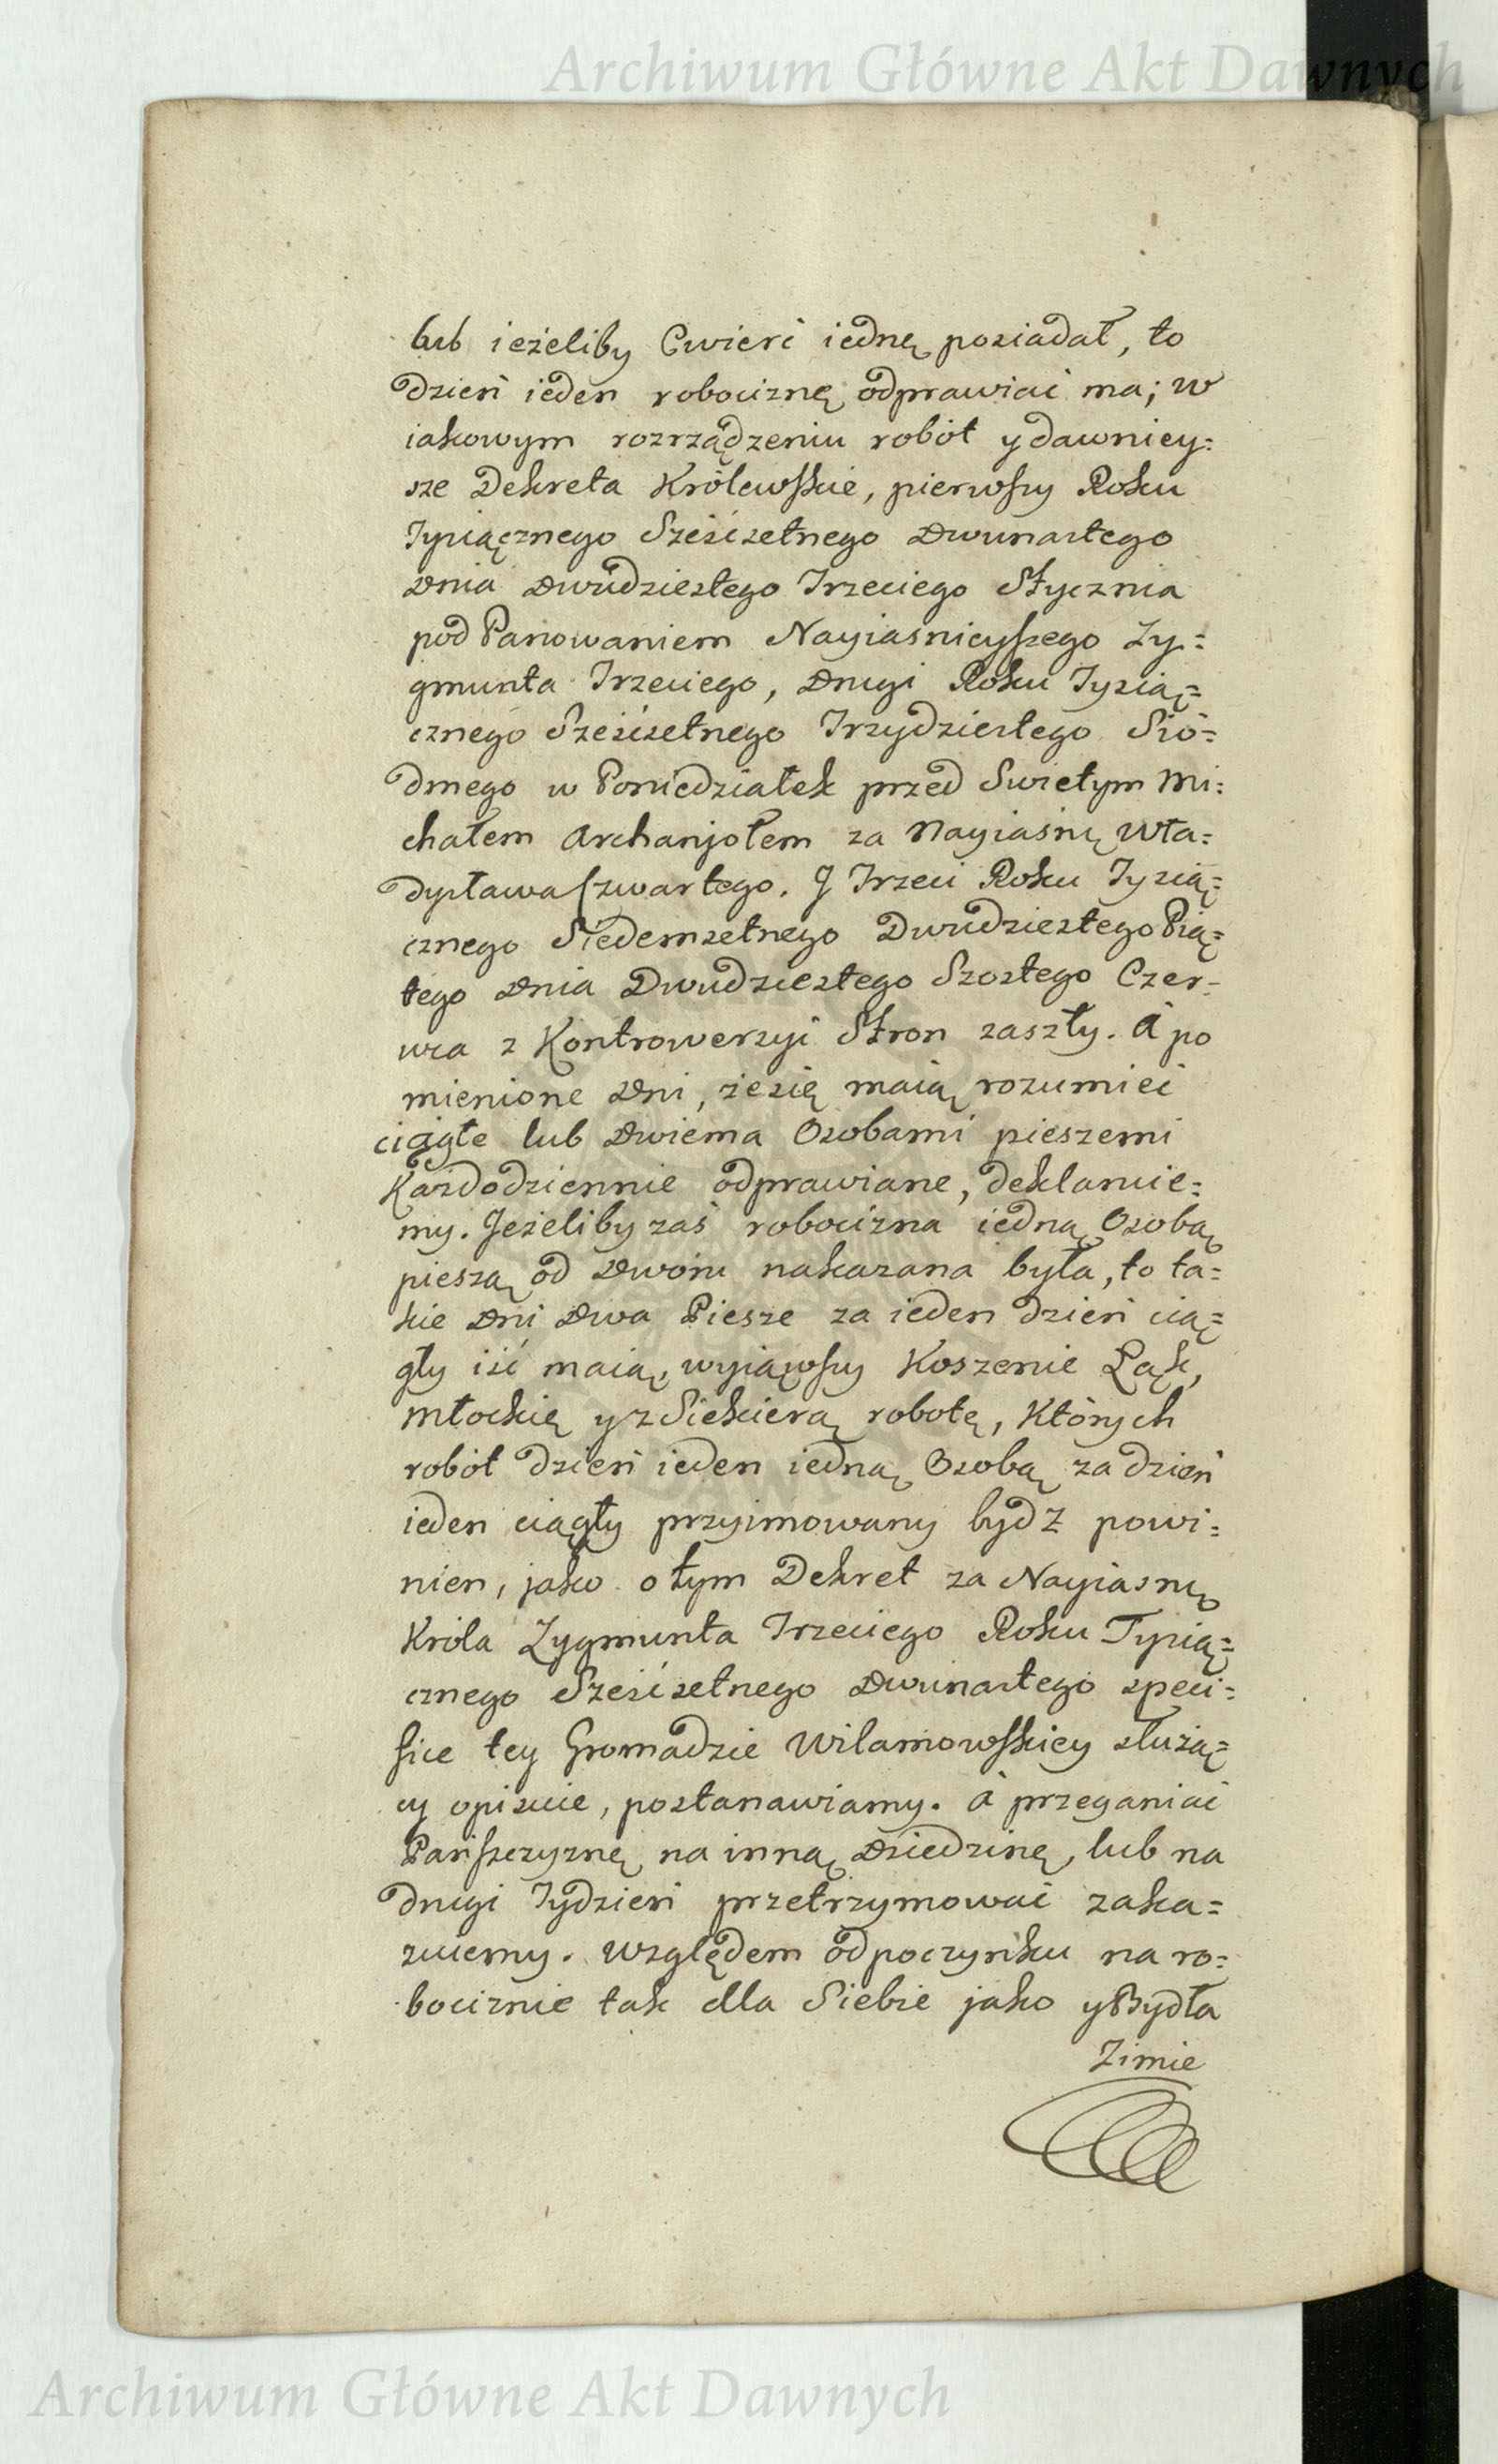 Archiwum Główne Akt Dawnych
lub ieżeliby Cwierć iednę posiadał, to
dzień ieden robociznę odprawiać ma; w
iakowym rozrządzeniu robót y dawniey:
sze Dekreta Królewskie, pierwszy Roku
Tysiącznego Sześćsetnego Dwunastego
Dnia Dwudziestego Trzeciego Stycznia
pod Panowaniem Nayiasnieyszego Zy:
gmunta Trzeciego, Drugi Roku Tysią=
cznego Sześćsetnego Trzydziestego Sió=
dmego w Poniedziałek przed Swietym Mi:
chałem Archanjołem za Nayiaśnę Wła=
dysława Czwartego. J Trzeci Roku Tysią=
cznego Siedemsetnego Dwudziestego Pią=
tego Dnia Dwudziestego Szostego Czer=
wca z Kontrowersyi Stron zaszły. á po
mienione Dni, że się maią rozumieć
ciągłe lub Dwiema Osobami pieszemi
każdodziennie odprawiane, deklaruie:
my. Jeżeliby zaś robocizna iedną Osobą
pieszą od Dworu nakazana była, to ta=
kie Dni Dwa Piesze za ieden dzień cią=
gły iść maią, wyiąwszy Koszenie Łąk,
młockię y z Siekierą robotę, których
robót dzień ieden iedną Osobą za dzień
ieden ciągły przyimowany bydz powi:
nien, jako o tym Dekret za Nayiasnę
Króla Zygmunta Trzeciego Roku Tysią=
cznego Sześćsetnego Dwunastego speci=
fice tey Gromadzie Wilamowskiey służą=
cy opisuie, postanawiamy. á przeganiać
Pańszczyznę na inną Dziedzinę, lub na
drugi Tydzień przetrzymować zaka=
zuiemy. Względem odpoczynku na ro=
bociznie tak dla Siebie jako y Bydła
Zimie
Archiwum Główne Akt Dawnych